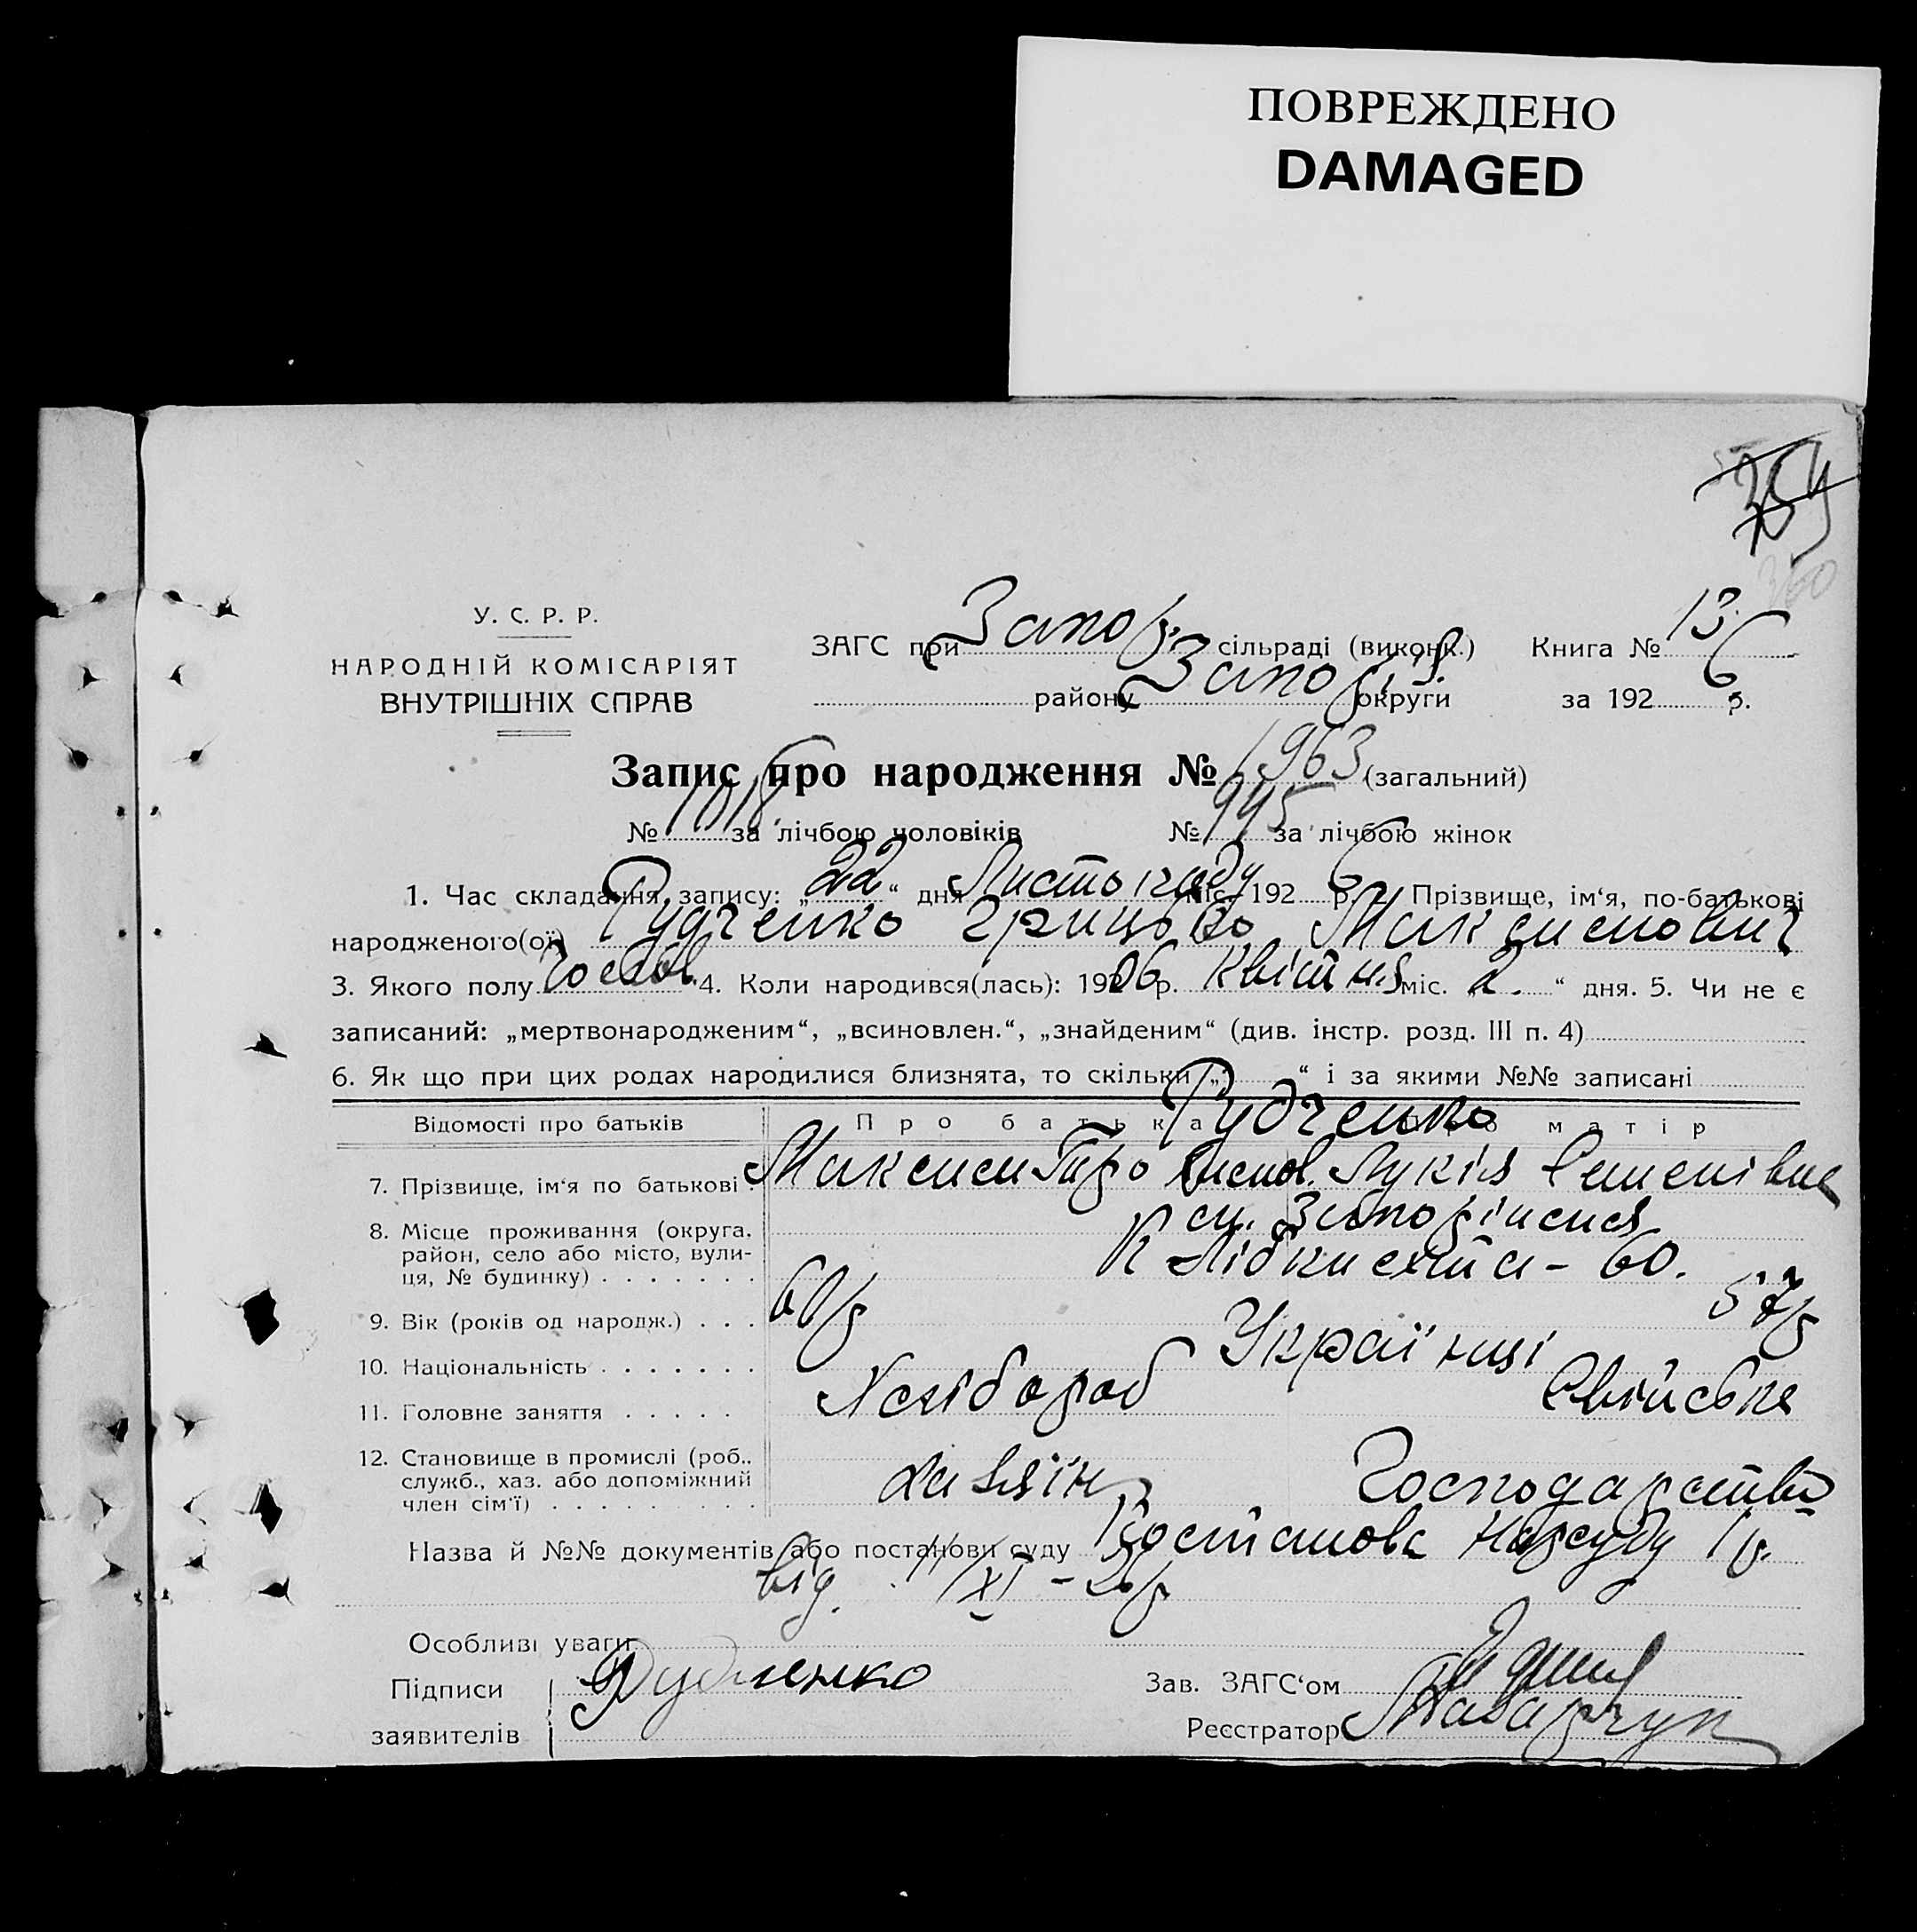 ПОВРЕЖДЕНО
DAMAGED
У. С. Р. Р.
НАРОДНІЙ КОМІСАРІЯТ
ВНУТРІШНІХ СПРАВ
ЗАГС при Запор. сільраді (виконк.) Книга № 13
району Запоріз. округи за 1926 р.
Запис про народження № 1963 (загальний)
№ 1018 за лічбою чоловіків № 945 за лічбою жінок
1. Час складання запису: „22“ дня Листопаду міс. 1926 р. 2. Прізвище, ім‘я, по-батькові
народженого(ої) Рудченко Грицько Максимович
3. Якого полу чолов. 4. Коли народився(лась): 1906 р. Квітня міс. „2.“ дня. 5. Чи не є
записаний: „мертвонародженим“, „всиновлен.“, „знайденим“ (див. інстр. розд. III п. 4)
6. Як що при цих родах народилися близнята, то скільки „ “ і за якими №№ записані
Відомості про батьків Про батька Про матір
Рудченко
7. Прізвище, ім‘я по батькові Максим Лукія Семенівна
8. Місце проживання (округа, район, село або місто, вулиця, № будинку) м. Запоріжжя
К Лібкнехта - 60.
9. Вік (років од народж.) 60 р 57 р
10. Національність Українці
11. Головне заняття Хлібороб Свійське
12. Становище в промислі (роб., служб., хаз. або допоміжний член сім‘ї) Хазяїн Господарство
Назва й №№ документів або постанови суду Постанова Нарсуду 1 р.
від. 11/XI - 26 р
Особливі уваги
Підписи заявителів Рудченко
Зав. ЗАГС‘ом
Реєстратор